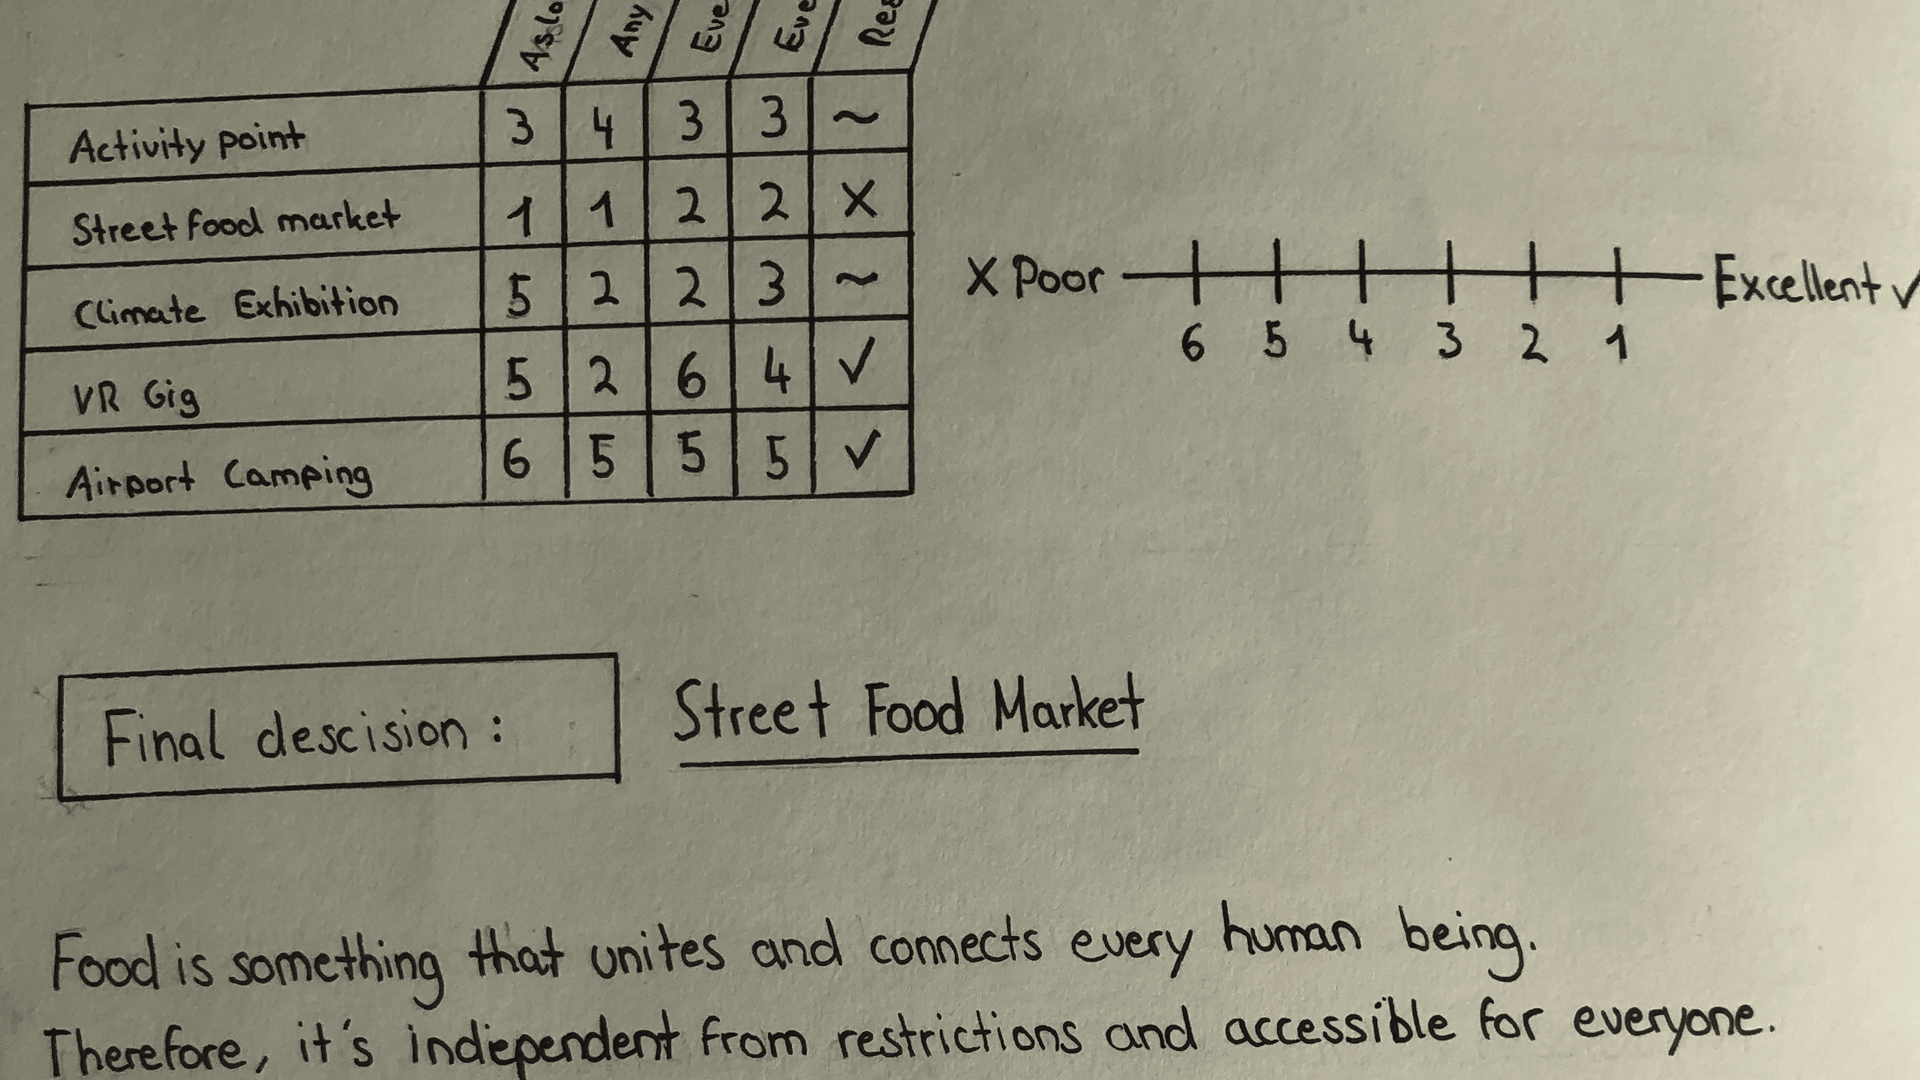 Any
Activity point 3 4 3 3 ~
Street food market 1 1 2 2 X
Climate Exhibition 5 2 2 3 ~
VR Gig 5 2 6 4 ✓
Airport Camping 6 5 5 5 ✓
X Poor Excellent ✓
6 5 4 3 2 1
Final descision : Street Food Market
Food is something that unites and connects every human being.
Therefore, it's independent from restrictions and accessible for everyone.